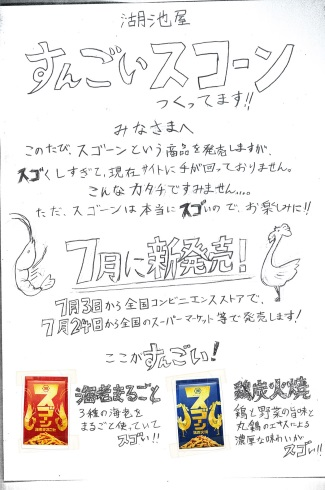 湖池屋
すんごいスゴーン
つくってます!!
みなさまへ
このたび、スゴーンという商品を発売しますが、
スゴくしすぎて、現在サイトに手が回っておりません。
こんなカタチですみません....
ただ、スゴーンは本当にスゴいので、お楽しみに!!
7月に新発売!
7月3日から全国コンビニエンスストアで、
7月24日から全国のスーパーマーケット等で発売します!
ここがすんごい!
海老まるごと
3種の海老を
まるごと使っていて
スゴい!!
鶏炭火焼
鶏と野菜の旨味と
丸鶏のエキスによる
濃厚な味わいが
スゴい!!
スゴーン
スゴーン